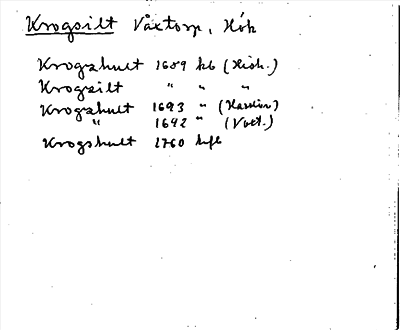 Krogsilt Våxtorp, Hök
Krogshult 1689 kb (Hish.)
Krogsilt " " "
Krogshult 1693 " (Hasslöv)
" 1692 " (Voxt.)
Krogshult 1760 hfl